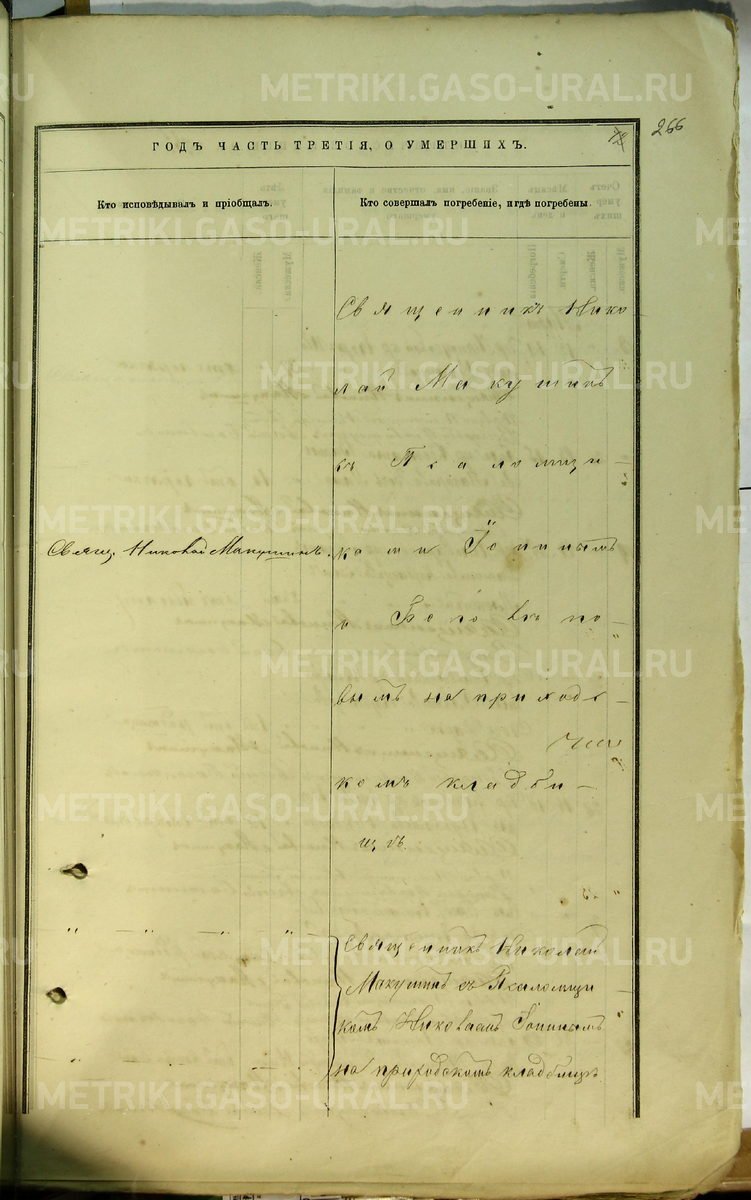 266
ГОДЪ ЧАСТЬ ТРЕТІЯ, О УМЕРШИХЪ.
Кто исповѣдывалъ и пріобщалъ.
Кто совершалъ погребеніе, и гдѣ погребены.
Священникъ Нико
лай Макушинъ
съ Псаломщи-
ками
и
вымъ на приходс-
комъ кладби-
щѣ.
Свящ. Николай Макушинъ.
Священникъ Николай
Макушинъ съ Псаломщи-
комъ Николаемъ
на приходскомъ кладбищѣ
METRIKI.GASO-URAL.RU